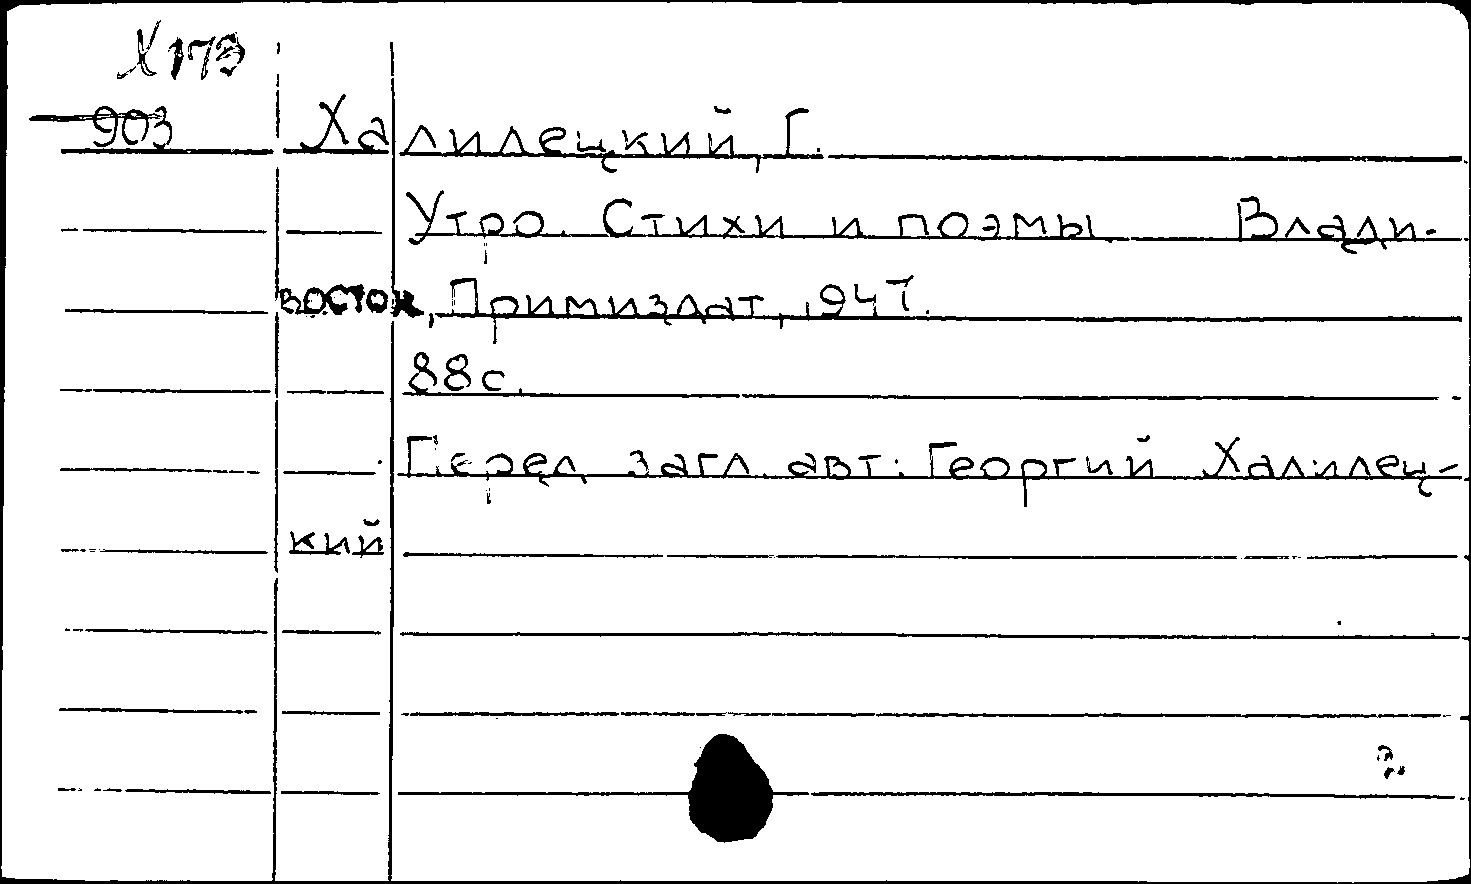 Х173
903 Халилецкий, Г.
Утро. Стихи и поэмы Влади-
восток, Примиздат, 1947.
88 с.
Перед загл. авт: Георгий Халилец-
кий